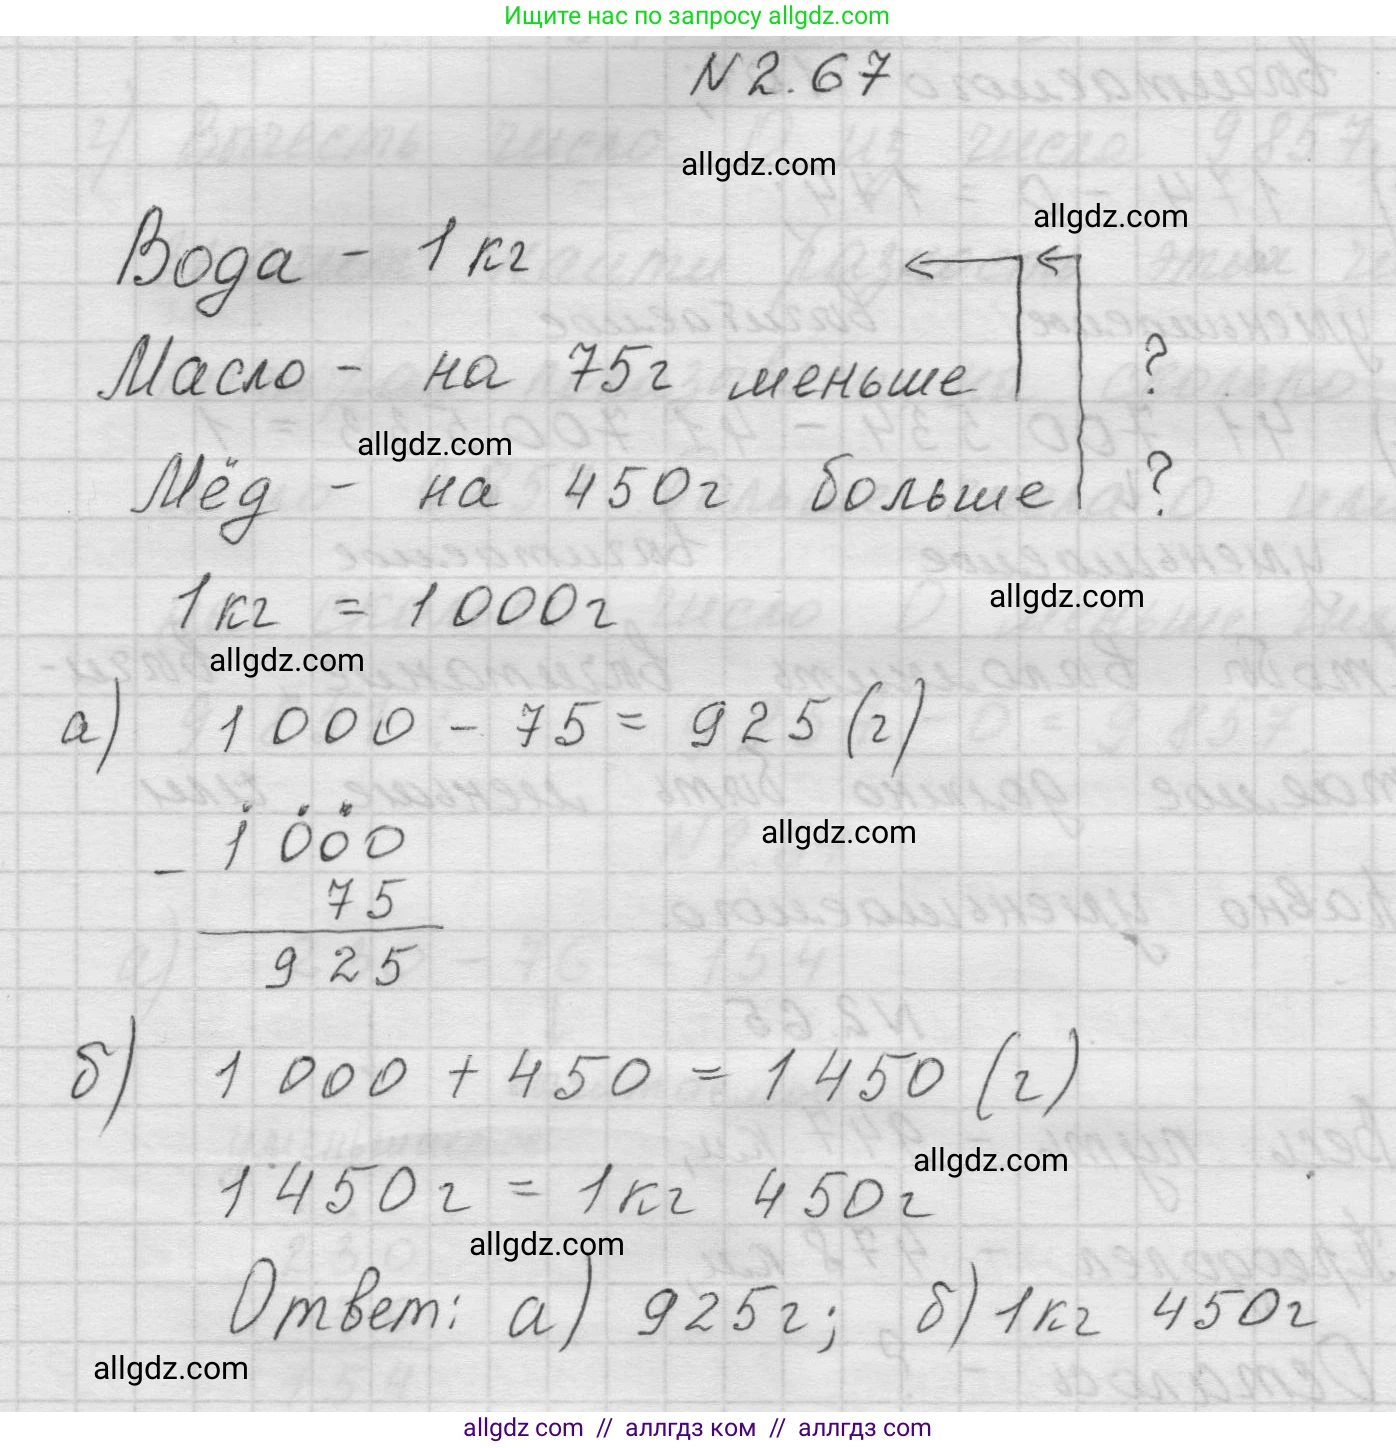 Ищите нас по запросу allgdz.com
N 2.67
allgdz.com
allgdz.com
Вода - 1 кг
Масло - на 75г меньше ?
allgdz.com
Мёд - на 450г больше ?
1кг = 1000г
allgdz.com
allgdz.com
а) 1 000 - 75 = 925 (г)
1 000
allgdz.com
-
75
925
б) 1 000 + 450 = 1 450 (г)
allgdz.com
1 450г = 1кг 450г
allgdz.com
Ответ: а) 925г; б) 1кг 450г
allgdz.com
allgdz.com // аллгдз ком // allgdz.com